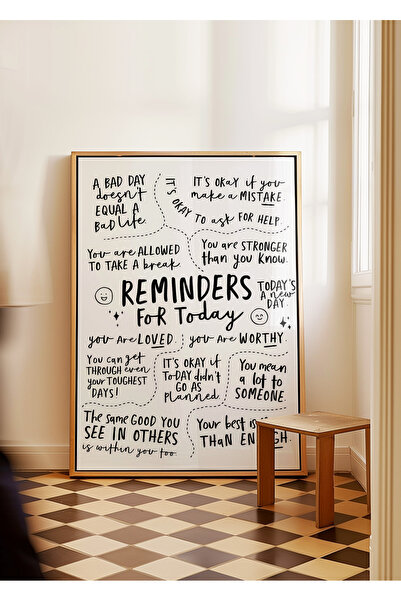 A BAD DAY
doesn't
EQUAL A
BAD life.
IT'S OKAY TO ask FOR HELP.
IT'S OKAY if you
make a MISTAKE.
You are ALLOWED
TO TAKE a break.
You are STRONGER
than you know.
REMINDERS
FOR Today
TODAY'S
A new
DAY
you are LOVED.
you are WORTHY.
You can get
THROUGH even
your TOUGHEST
DAYS!
IT'S OKAY if
TODAY didn't
GO AS
planned.
You mean
a lot to
SOMEONE.
The same GOOD YOU
SEE IN OTHERS
is within you too.
Your best is
THAN